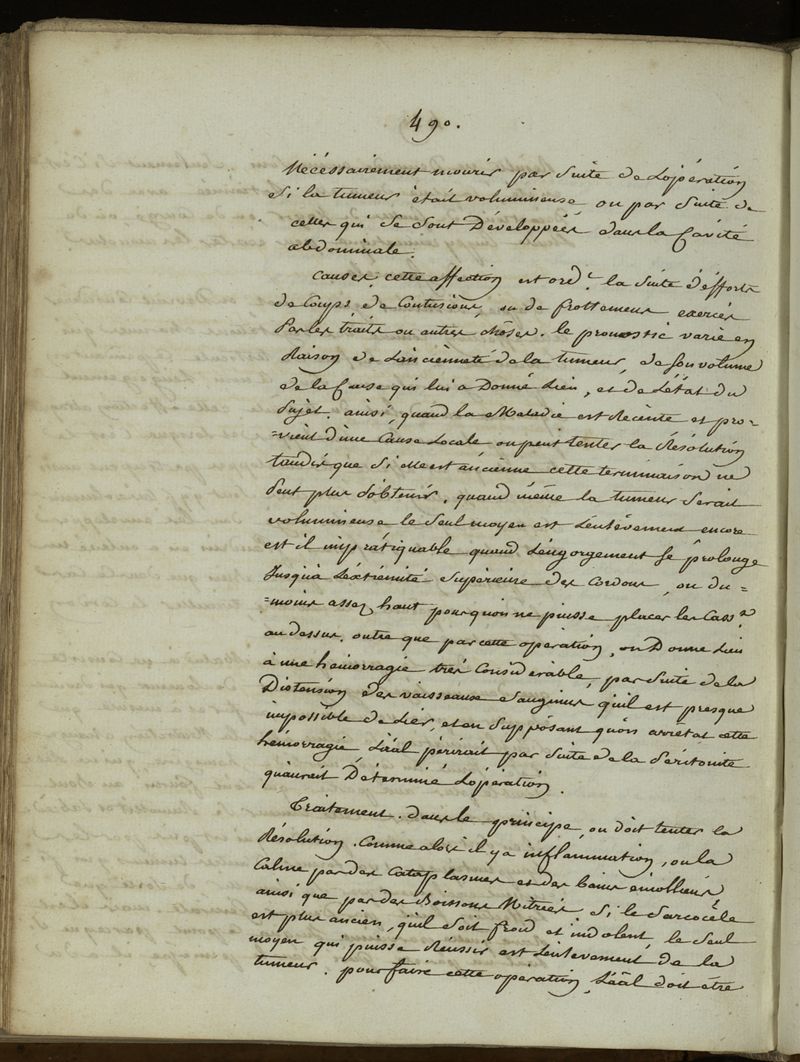 490.
Nécessairement mourir par Suite de L'opération
Si la tumeur était volumineuse ou par Suite de
celles qui se sont Développées dans la Cavité
abdóminale.
Causes, cette affection est ord.t la Suite d'éfforts
de Coups de Contusions, ou de frottemens exercés
Par les traits ou autres chôses. le pronostic varie en
Raison de L'anciénneté de la tumeur, de son volume
de la Cause qui lui a Donné Lieu, et de L'état du
Sujet. ainsi, quand la Maladie est Récente et pro-
=vient d'une Cause Locale on peut tenter la Résolution
tandis que Si elle est ancienne cette terminaison ne
Peut plus S'obtenir, quand même la tumeur Serait
volumineuse le Seul moyen est L'enlévement encore
est il impratiquable quand L'engorgement se prolonge
Jusqu'à L'éxtrémité Supérieure des Cordons, ou du=
=moins assez haut pour qu'on ne puisse placer les Cass.x
au dessus. outre que par cette opération, on Donne Lieu
à une hémorragie très Considérable, par Suite de la
Distension des vaisseaux Sanguins qu'il est presque
impossible de Lier, et en Suppôsant qu'on arretat cette
hémorragie L'a'al périrait par Suite de la Péritonite
qu'aurait Déterminé L'opération.
Traitement. Dans le principe, on doit tenter la
Résolution. Comme alors il y a inflammation, on la
Calme par des Cataplasmes et des bains émolliens
ainsi que par des Boissons Nitrées. Si le Sarcocèle
est plus ancien, qu'il Soit froid et indolent, le Seul
moyen qui puisse Réussir est L'enlevement de la
tumeur. pour faire cette opération, L'a'al doit être